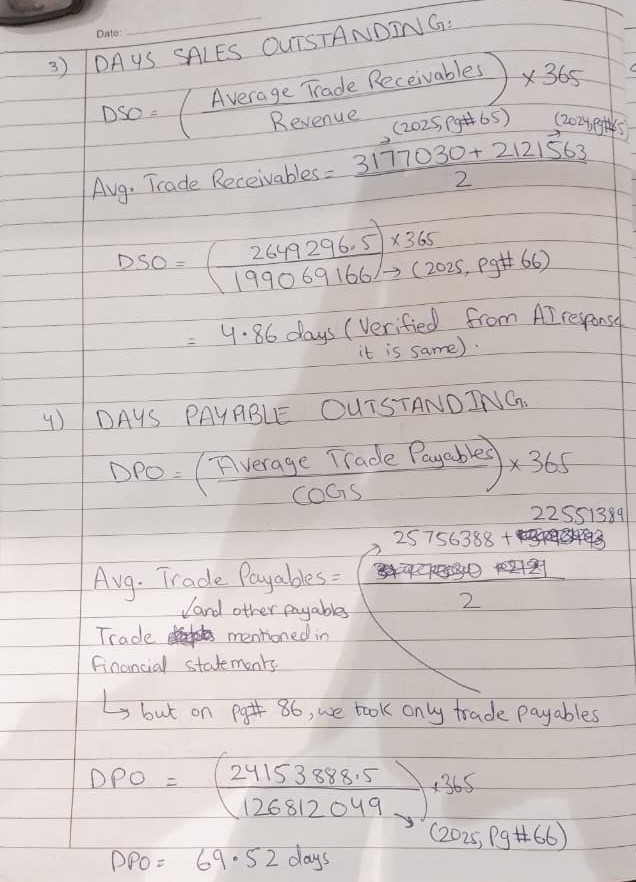 Date:
3) DAYS SALES OUTSTANDING:
DSO = ( Average Trade Receivables / Revenue ) × 365
(2025, pg# 65) (2024, pg#65)
Avg. Trade Receivables = 3177030 + 2121563
2
DSO = ( 2649296.5 / 199069166 ) × 365
→ (2025, Pg# 66)
= 4.86 days (Verified from AI response
it is same).
4) DAYS PAYABLE OUTSTANDING.
DPO = ( Average Trade Payables / COGS ) × 365
22551389
25756388 +
Avg. Trade Payables =
2
Trade and other payables
mentioned in
financial statements
↳ but on pg# 86, we took only trade payables
DPO = ( 24153888.5 / 126812049 ) × 365
→ (2025, Pg#66)
DPO = 69.52 days